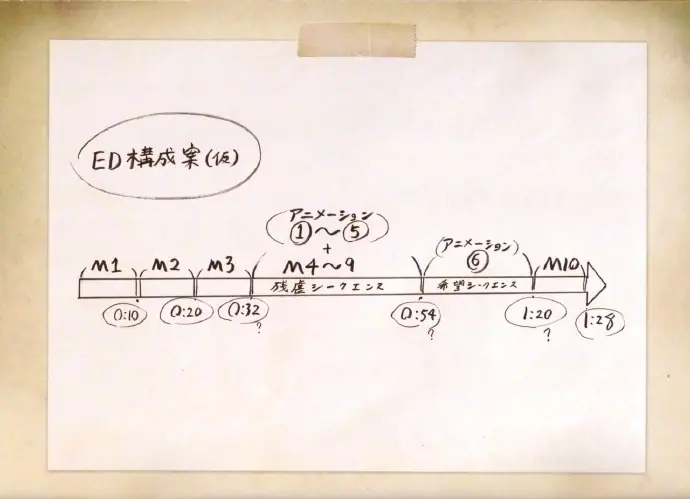 ED構成案(仮)
(アニメーション
①〜⑤)
+
M1
M2
M3
M4〜9
(アニメーション)
⑥
M10
残虐シークエンス
希望シークエンス
0:10
0:20
0:32
?
0:54
?
1:20
?
1:28